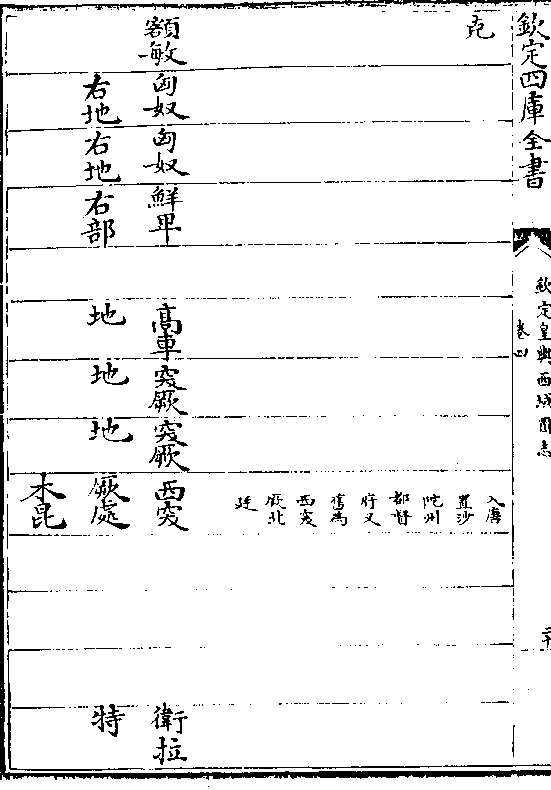 欽定四庫全書
欽定皇輿西域圖志
卷四
入唐
置沙
陀州
都督
府又
舊為
西突
厥北
廷
額敏
匈奴
右地
匈奴
右地
鮮卑
右部
高車
地
突厥
地
突厥
地
西突
厥處
木昆
衛拉
特